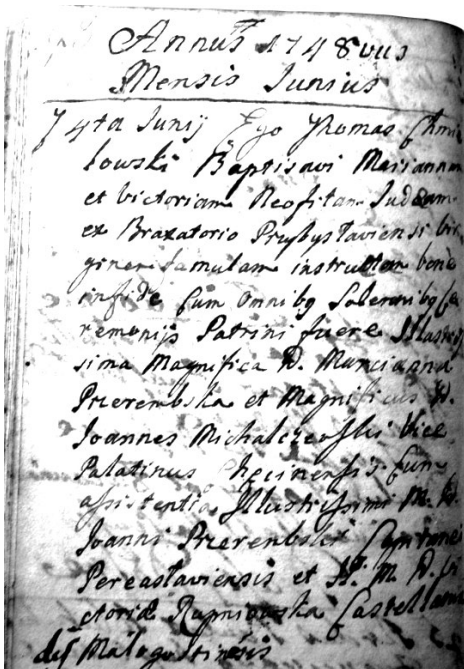 Annus 1748vus
Mensis Junius
14ta Junij Ego Thomas Chmie
lowski Baptisavi Mariannam
et Victoriam Neofitam Judeam
ex Braxatorio Przybystaviensi vir
ginem famulam instructam bene
in fide Cum omnibq Solennibq Ce
remonijs Patrini fuere Illustris
sima Magnifica D. Marcianna
Przerembska et Magnificus D.
Joannes Michalczewski Vice
Palatinus Checinensis Cum
assistentia Illustrissimi M. D.
Joanni Przerembski Capitanei
Pereaslaviensis et Jll. M. D. Vi
ctoriæ Rupniewska Castellana
Malogostinensis